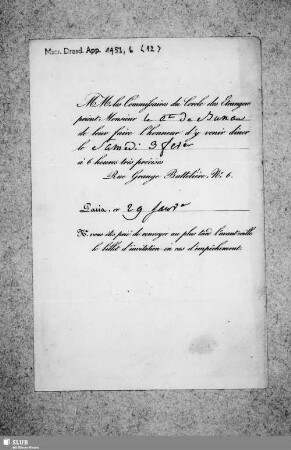 Mscr. Dresd. App. 1951, 6 (12)
MM. les Commissaires du Cercle des Etrangers
prient Monsieur le
de leur faire l'honneur d'y venir diner
le Samedi 3
à 6 heures très précises
Rue Grange Batteliere, N.º 6.
Paris, ce 29 Janvr
N. vous êtes prié de renvoyer au plus tard l'avant-veille
le billet d'invitation en cas d'empêchement.
SLUB